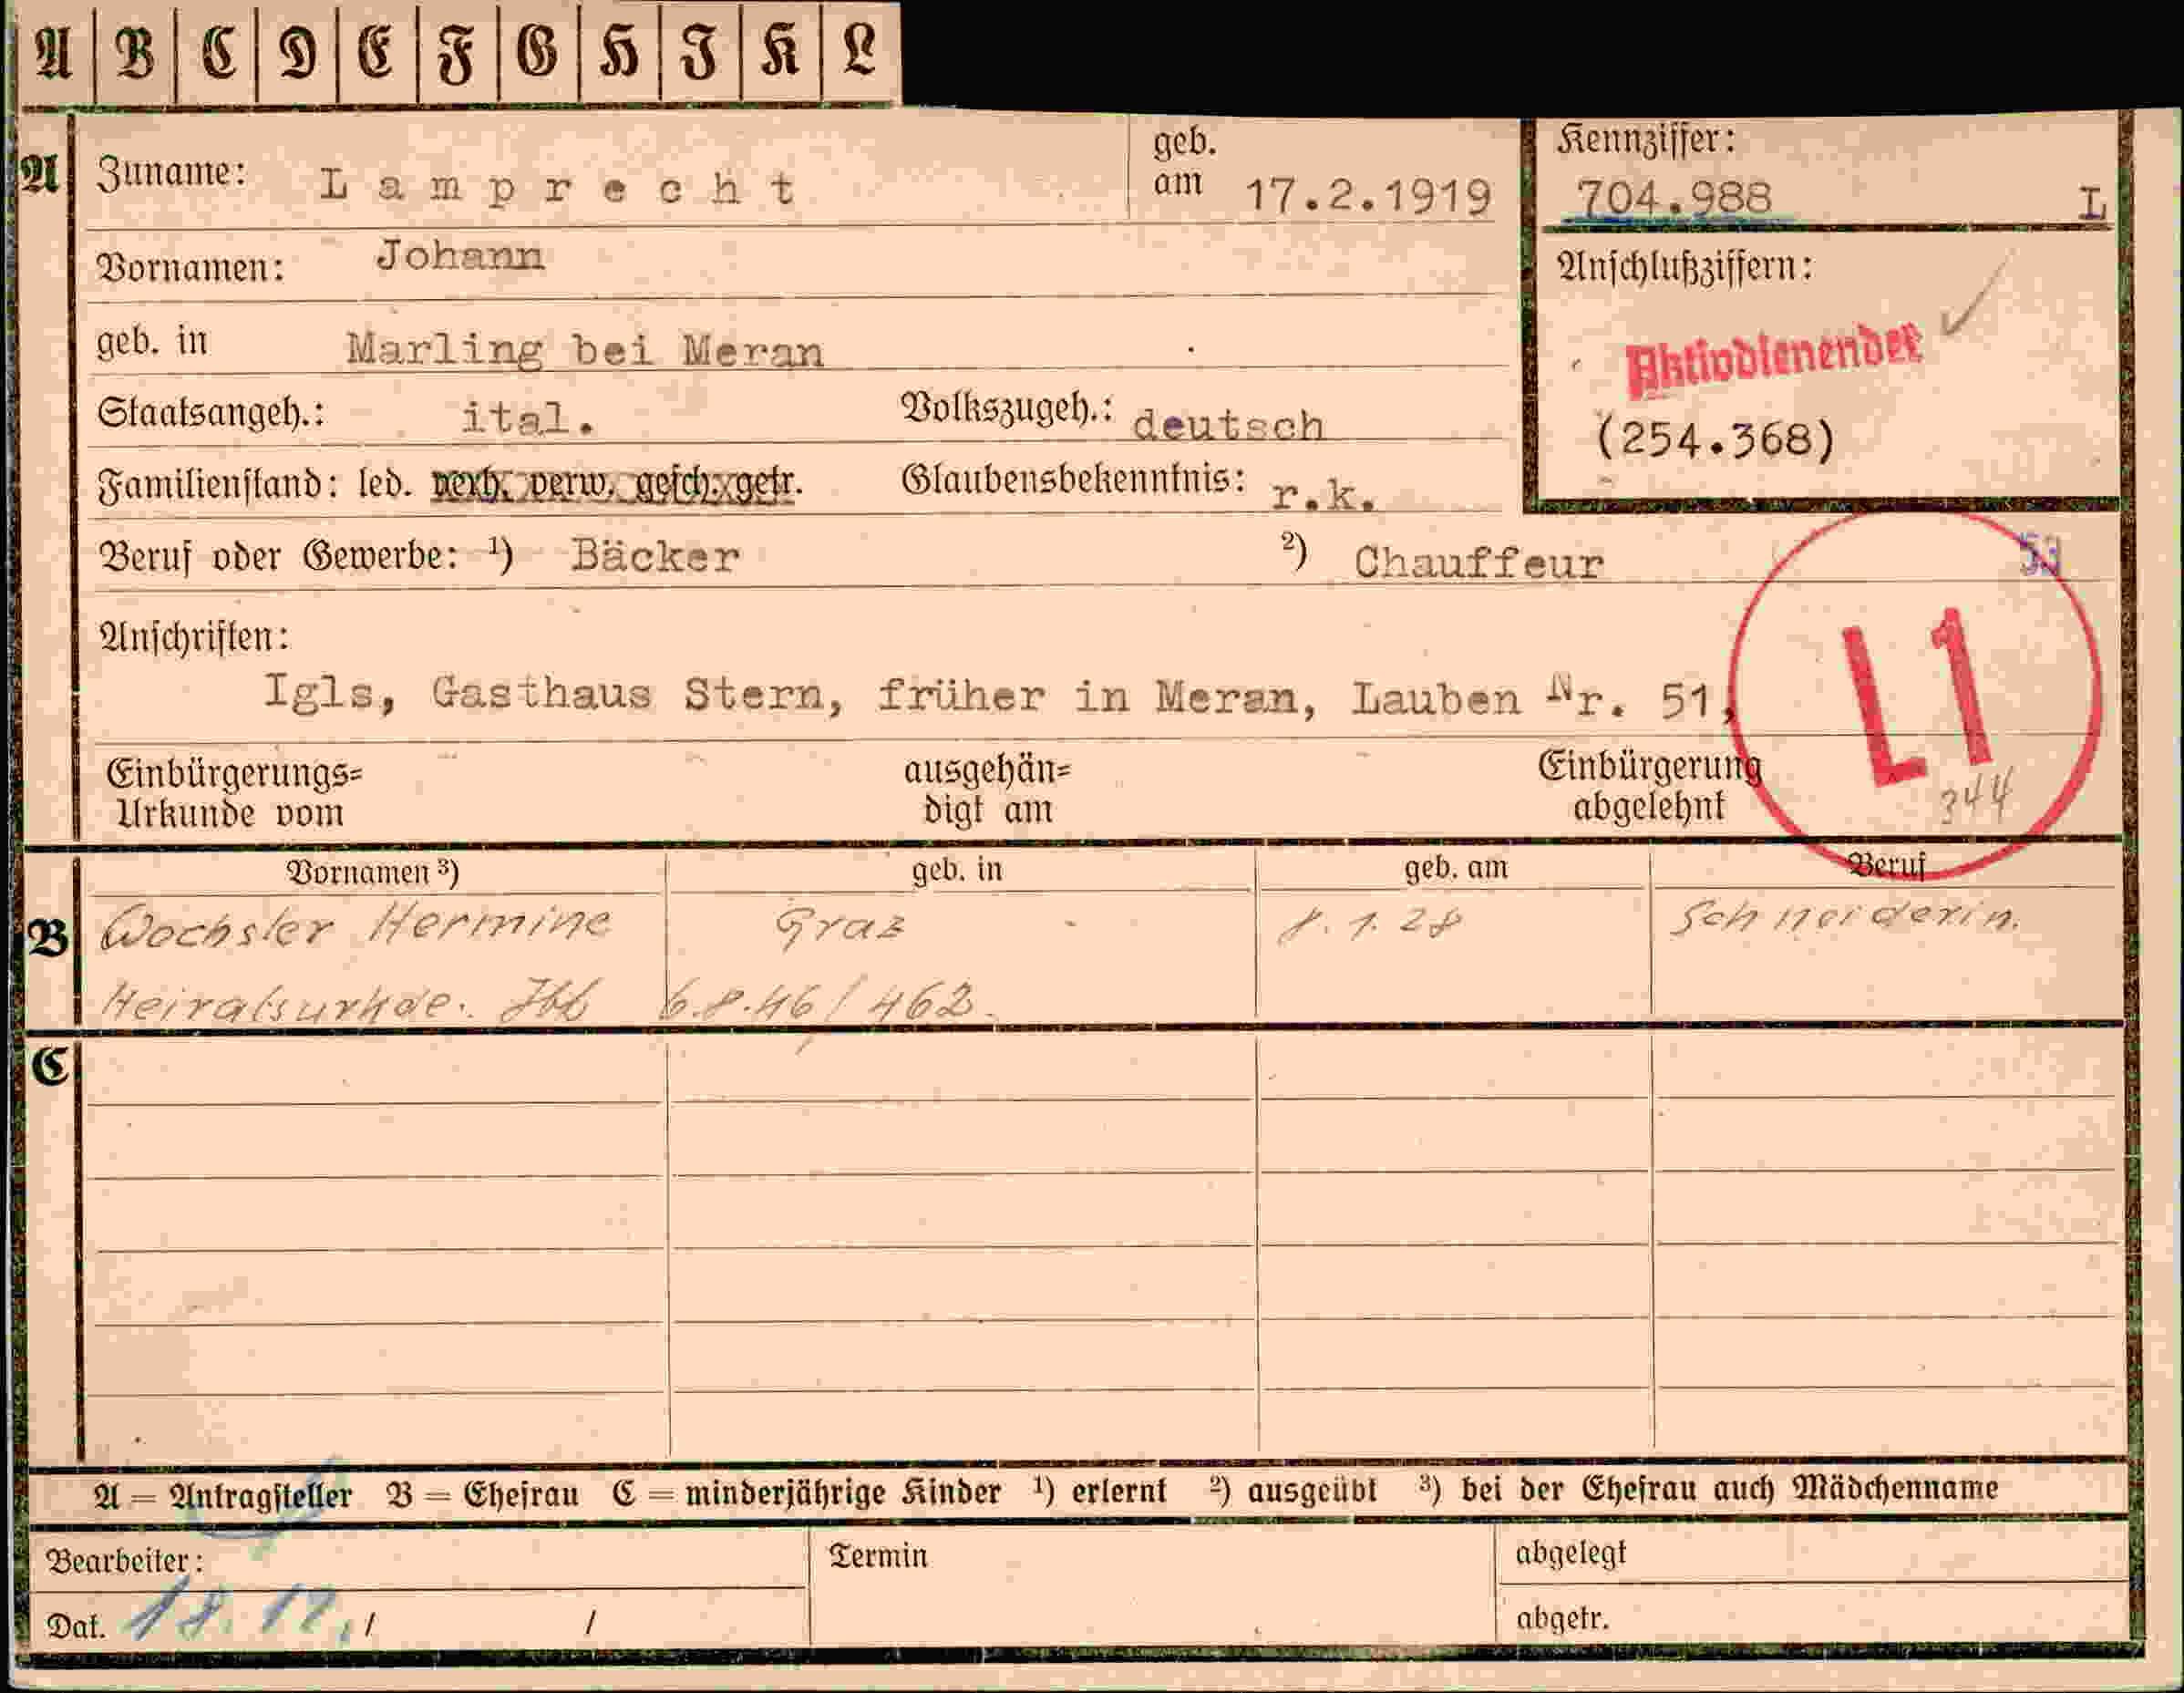 A B C D E F G H I K L
A Zuname: Lamprecht geb. am 17.2.1919 Kennziffer: 704.988 L
Vornamen: Johann Anschlußziffern:
geb. in Marling bei Meran Aktivdienender
Staatsangeh.: ital. Volkszugeh.: deutsch (254.368)
Familienstand: led. verh. verw. gesch. getr. Glaubensbekenntnis: r.k.
Beruf oder Gewerbe: ¹) Bäcker ²) Chauffeur 53
Anschriften:
Igls, Gasthaus Stern, früher in Meran, Lauben Nr. 51,
L1
Einbürgerungs= ausgehän= Einbürgerung
Urkunde vom digt am abgelehnt 344
Vornamen ³) geb. in geb. am Beruf
B Wochsler Hermine Graz 8.1.28 Schneiderin.
Heiratsurkde. Ibk 6.8.46/462.
C
A = Antragsteller B = Ehefrau C = minderjährige Kinder ¹) erlernt ²) ausgeübt ³) bei der Ehefrau auch Mädchenname
Bearbeiter: Termin abgelegt
Dat. 18.12. / / abgetr.